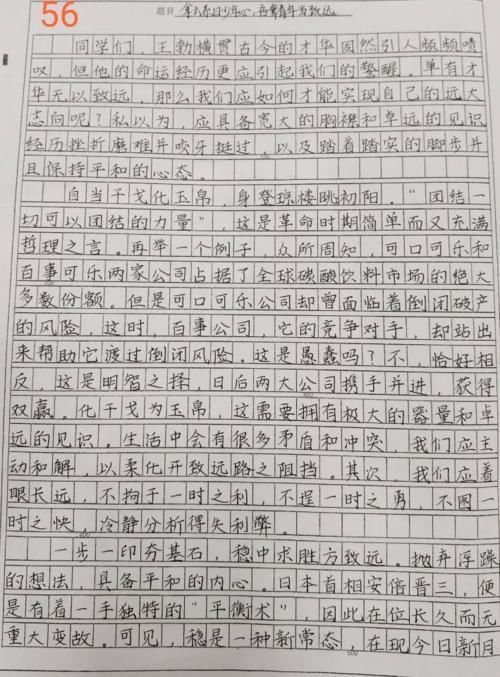 56
题目 拿云养日少年心,吾辈青年当致远
同学们,王勃横贯古今的才华固然引人频频啧
叹,但他的命运经历更应引起我们的警醒。单有才
华无以致远,那么我们应如何才能实现自己的远大
志向呢?私以为,应具备宽大的胸襟和卓远的见识
经历挫折磨难并咬牙挺过,以及踏着踏实的脚步并
且保持平和的心态。
自当干戈化玉帛,身登琼楼眺初阳。“团结一
切可以团结的力量”,这是革命时期简单而又充满
哲理之言。再举一个例子,众所周知,可口可乐和
百事可乐两家公司占据了全球碳酸饮料市场的绝大
多数份额。但是可口可乐公司却曾面临着倒闭破产
的风险,这时,百事公司,它的竞争对手,却站出
来帮助它渡过倒闭风险。这是愚蠢吗?不,恰好相
反,这是明智之择,日后两大公司携手并进,获得
双赢。化干戈为玉帛,这需要拥有极大的器量和卓
远的见识。生活中会有很多矛盾和冲突,我们应主
动和解,以柔化开致远路之阻挡。其次,我们应着
眼长远,不拘于一时之利,不逞一时之勇,不图一
时之快,冷静分析得失利弊。
一步一印夯基石,稳中求胜方致远。抛弃浮躁
的想法,具备平和的内心。日本首相安倍晋三,便
是有着一手独特的“平衡术”,因此在位长久而无
重大变故。可见,稳是一种新常态,在现今日新月